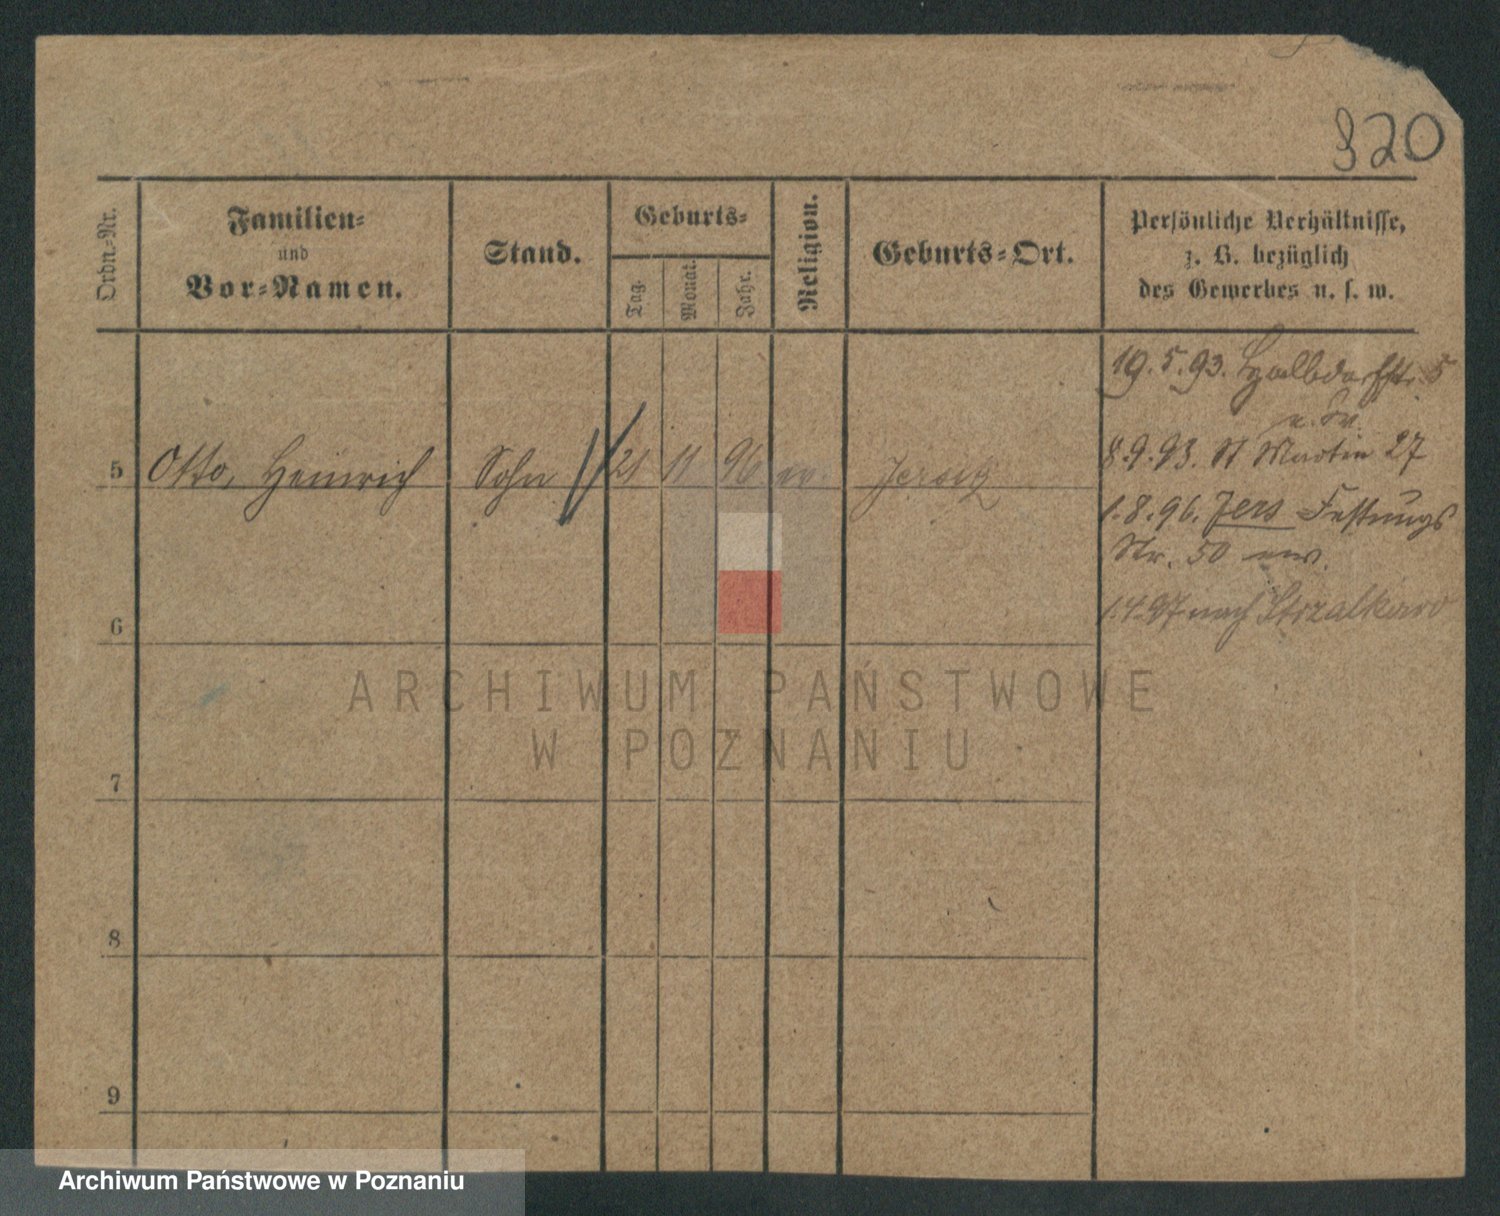 320
Ordn.-Nr.
Familien-
und
Vor-Namen.
Stand.
Geburts-
Tag.
Monat.
Jahr.
Religion.
Geburts-Ort.
Persönliche Verhältnisse,
z. B. bezüglich
des Gewerbes u. s. w.
19.5.93. Halbdorfstr. 5
5 Otto, Heinrich Sohn 21 11 96 ev. Jersitz
8.9.93. St Martin 27
1.8.96. Jers Festungs
Str. 50
1.4.97 nach Strzalkowo
6
ARCHIWUM PAŃSTWOWE
W POZNANIU
7
8
9
Archiwum Państwowe w Poznaniu